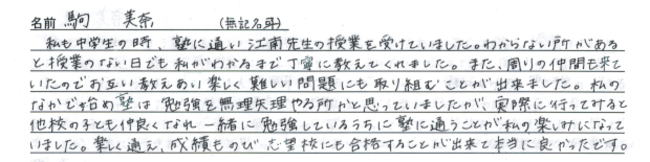 名前 駒 美奈 (無記名可)
私も中学生の時、塾に通い江南先生の授業を受けていました。わからない所がある
と授業のない日でも私がわかるまで丁寧に教えてくれました。また、周りの仲間も来て
いたのでお互い教えあい楽しく難しい問題にも取り組むことが出来ました。私の
なかで始め塾は勉強を無理矢理やる所かと思っていましたが、実際に行ってみると
他校の子とも仲良くなれ一緒に勉強しているうちに塾に通うことが私の楽しみになって
いました。楽しく通え、成績ものび志望校にも合格することが出来て本当に良かったです。